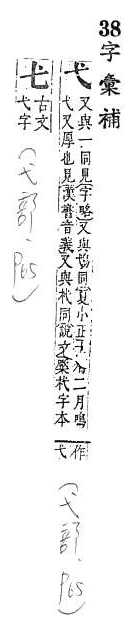 38 字彙補
弋 又與一同見字略又與同夏小正二月鳴
弋又厚也見漢書音義又與杙同說文杙字本
作弋
(弋部, P65)
古文
弋字
(弋部, P65)